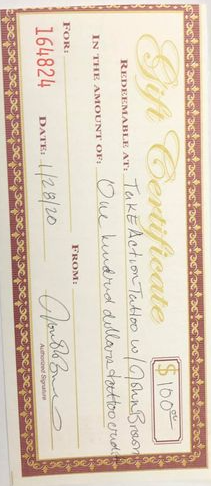 Gift Certificate
$ 100.00
REDEEMABLE AT: Take Action Tattoo w/ John Brown
IN THE AMOUNT OF: One hundred dollars tattoo credit
FOR: FROM:
164824 DATE: 1/28/20
Authorized Signature